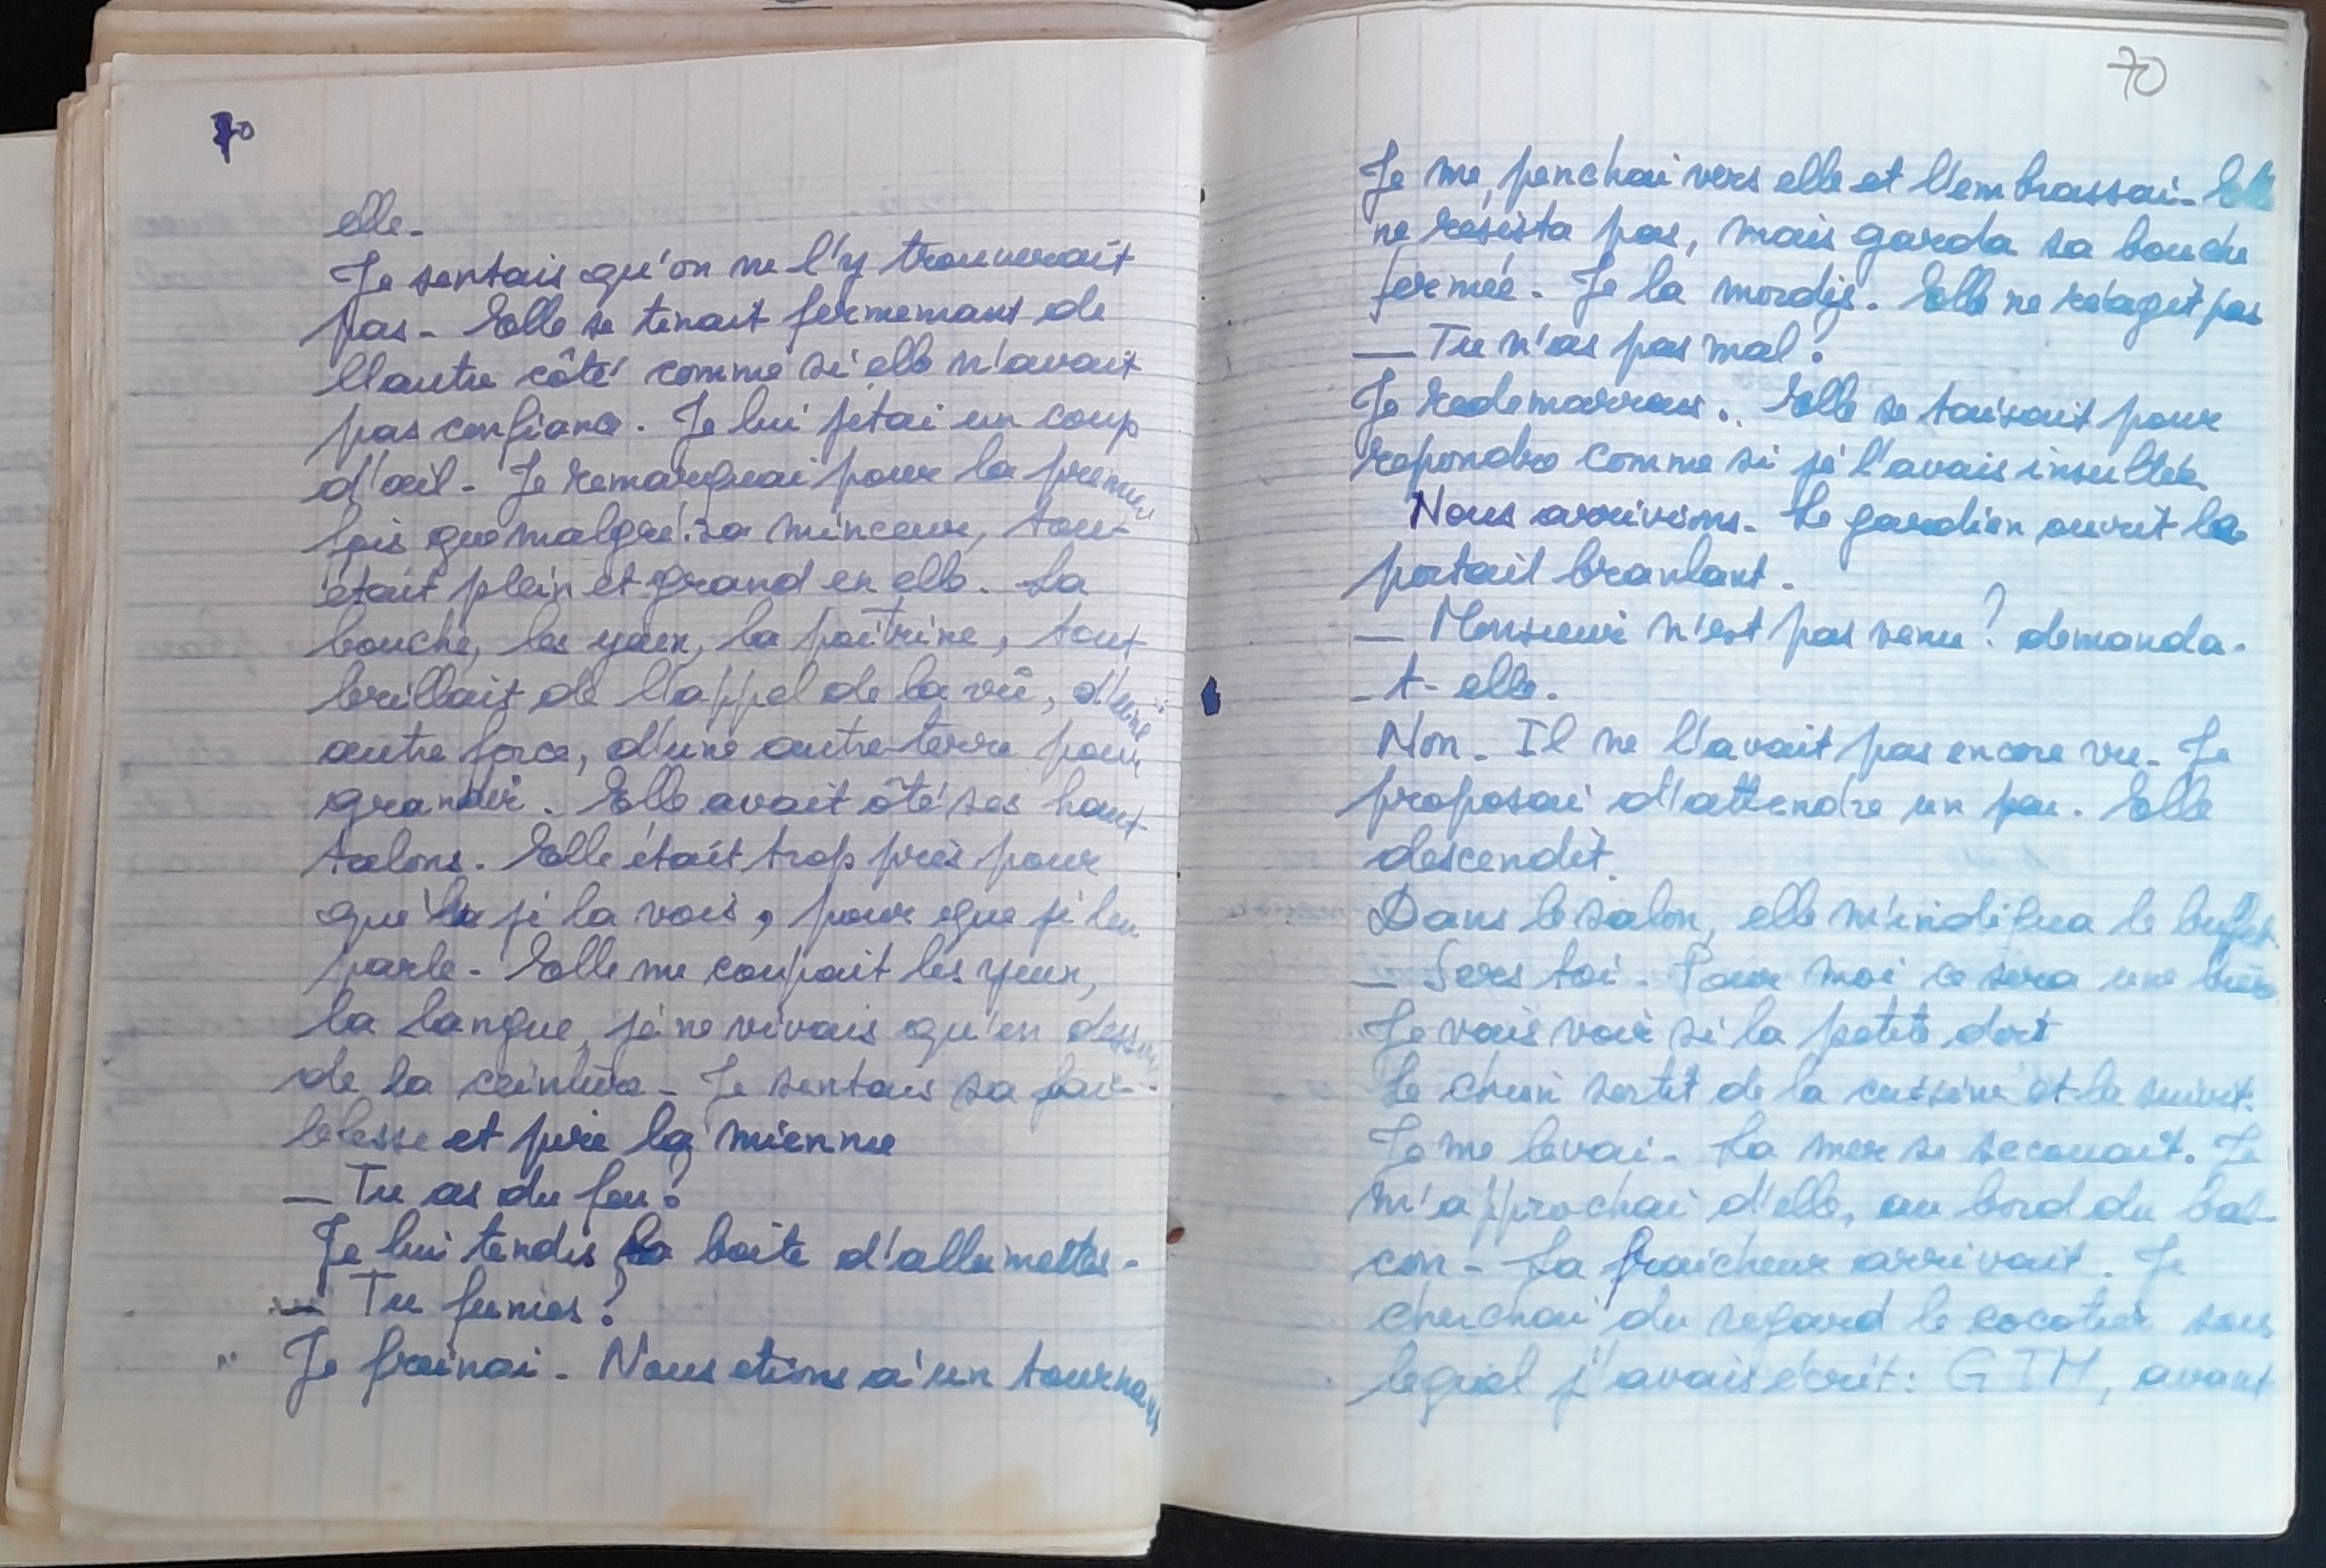 70
elle.
Je sentais qu'on ne l'y trouverait
pas. Elle se tenait fermemant de
l'autre côté comme si elle n'avait
pas confiance. Je lui jetai un coup
d'œil. Je remarquai pour la première
fois que malgré sa minceur, tout
était plein et grand en elle. La
bouche, les yeux, la poîtrine, tout
brillait de l'appel de la vie, d'une
autre force, d'une autre terre pour
grandir. Elle avait ôté ses haut
talons. Elle était trop près pour
que je la vois, pour que je lui
parle. Elle me coupait les yeux,
la langue, je ne vivais qu'en dessous
de la ceinture. Je sentais sa fai-
blesse et pire la mienne
— Tu as du feu?
Je lui tendis la boite d'allumettes.
— Tu fumes?
Je freinai. Nous etions à un tournant
70
Je me penchai vers elle et l'embrassai. Elle
ne résista pas, mais garda sa bouche
fermée. Je la mordis. Elle ne réagit pas
— Tu n'as pas mal?
Je redemarrais. Elle se taisait pour
repondre comme si je l'avais insultée
Nous arrivions. Le gardien ouvrit la
portail branlant.
— Monsieur n'est pas venu? demanda-
-t-elle.
Non. Il ne l'avait pas encore vu. Je
proposai d'attendre un peu. Elle
descendit.
Dans le salon, elle m'indiqua le buffet.
— Sers toi. Pour moi ce sera une bière
Je vais voir si la petite dort
Le chien sortit de la cuisine et la suivit.
Je me levai. La mer se secouait. Je
m'approchai d'elle, au bord du bal-
con. La fraicheur arrivait. Je
cherchai du regard le cocotier sous
lequel j'avais écrit: GTM, avant